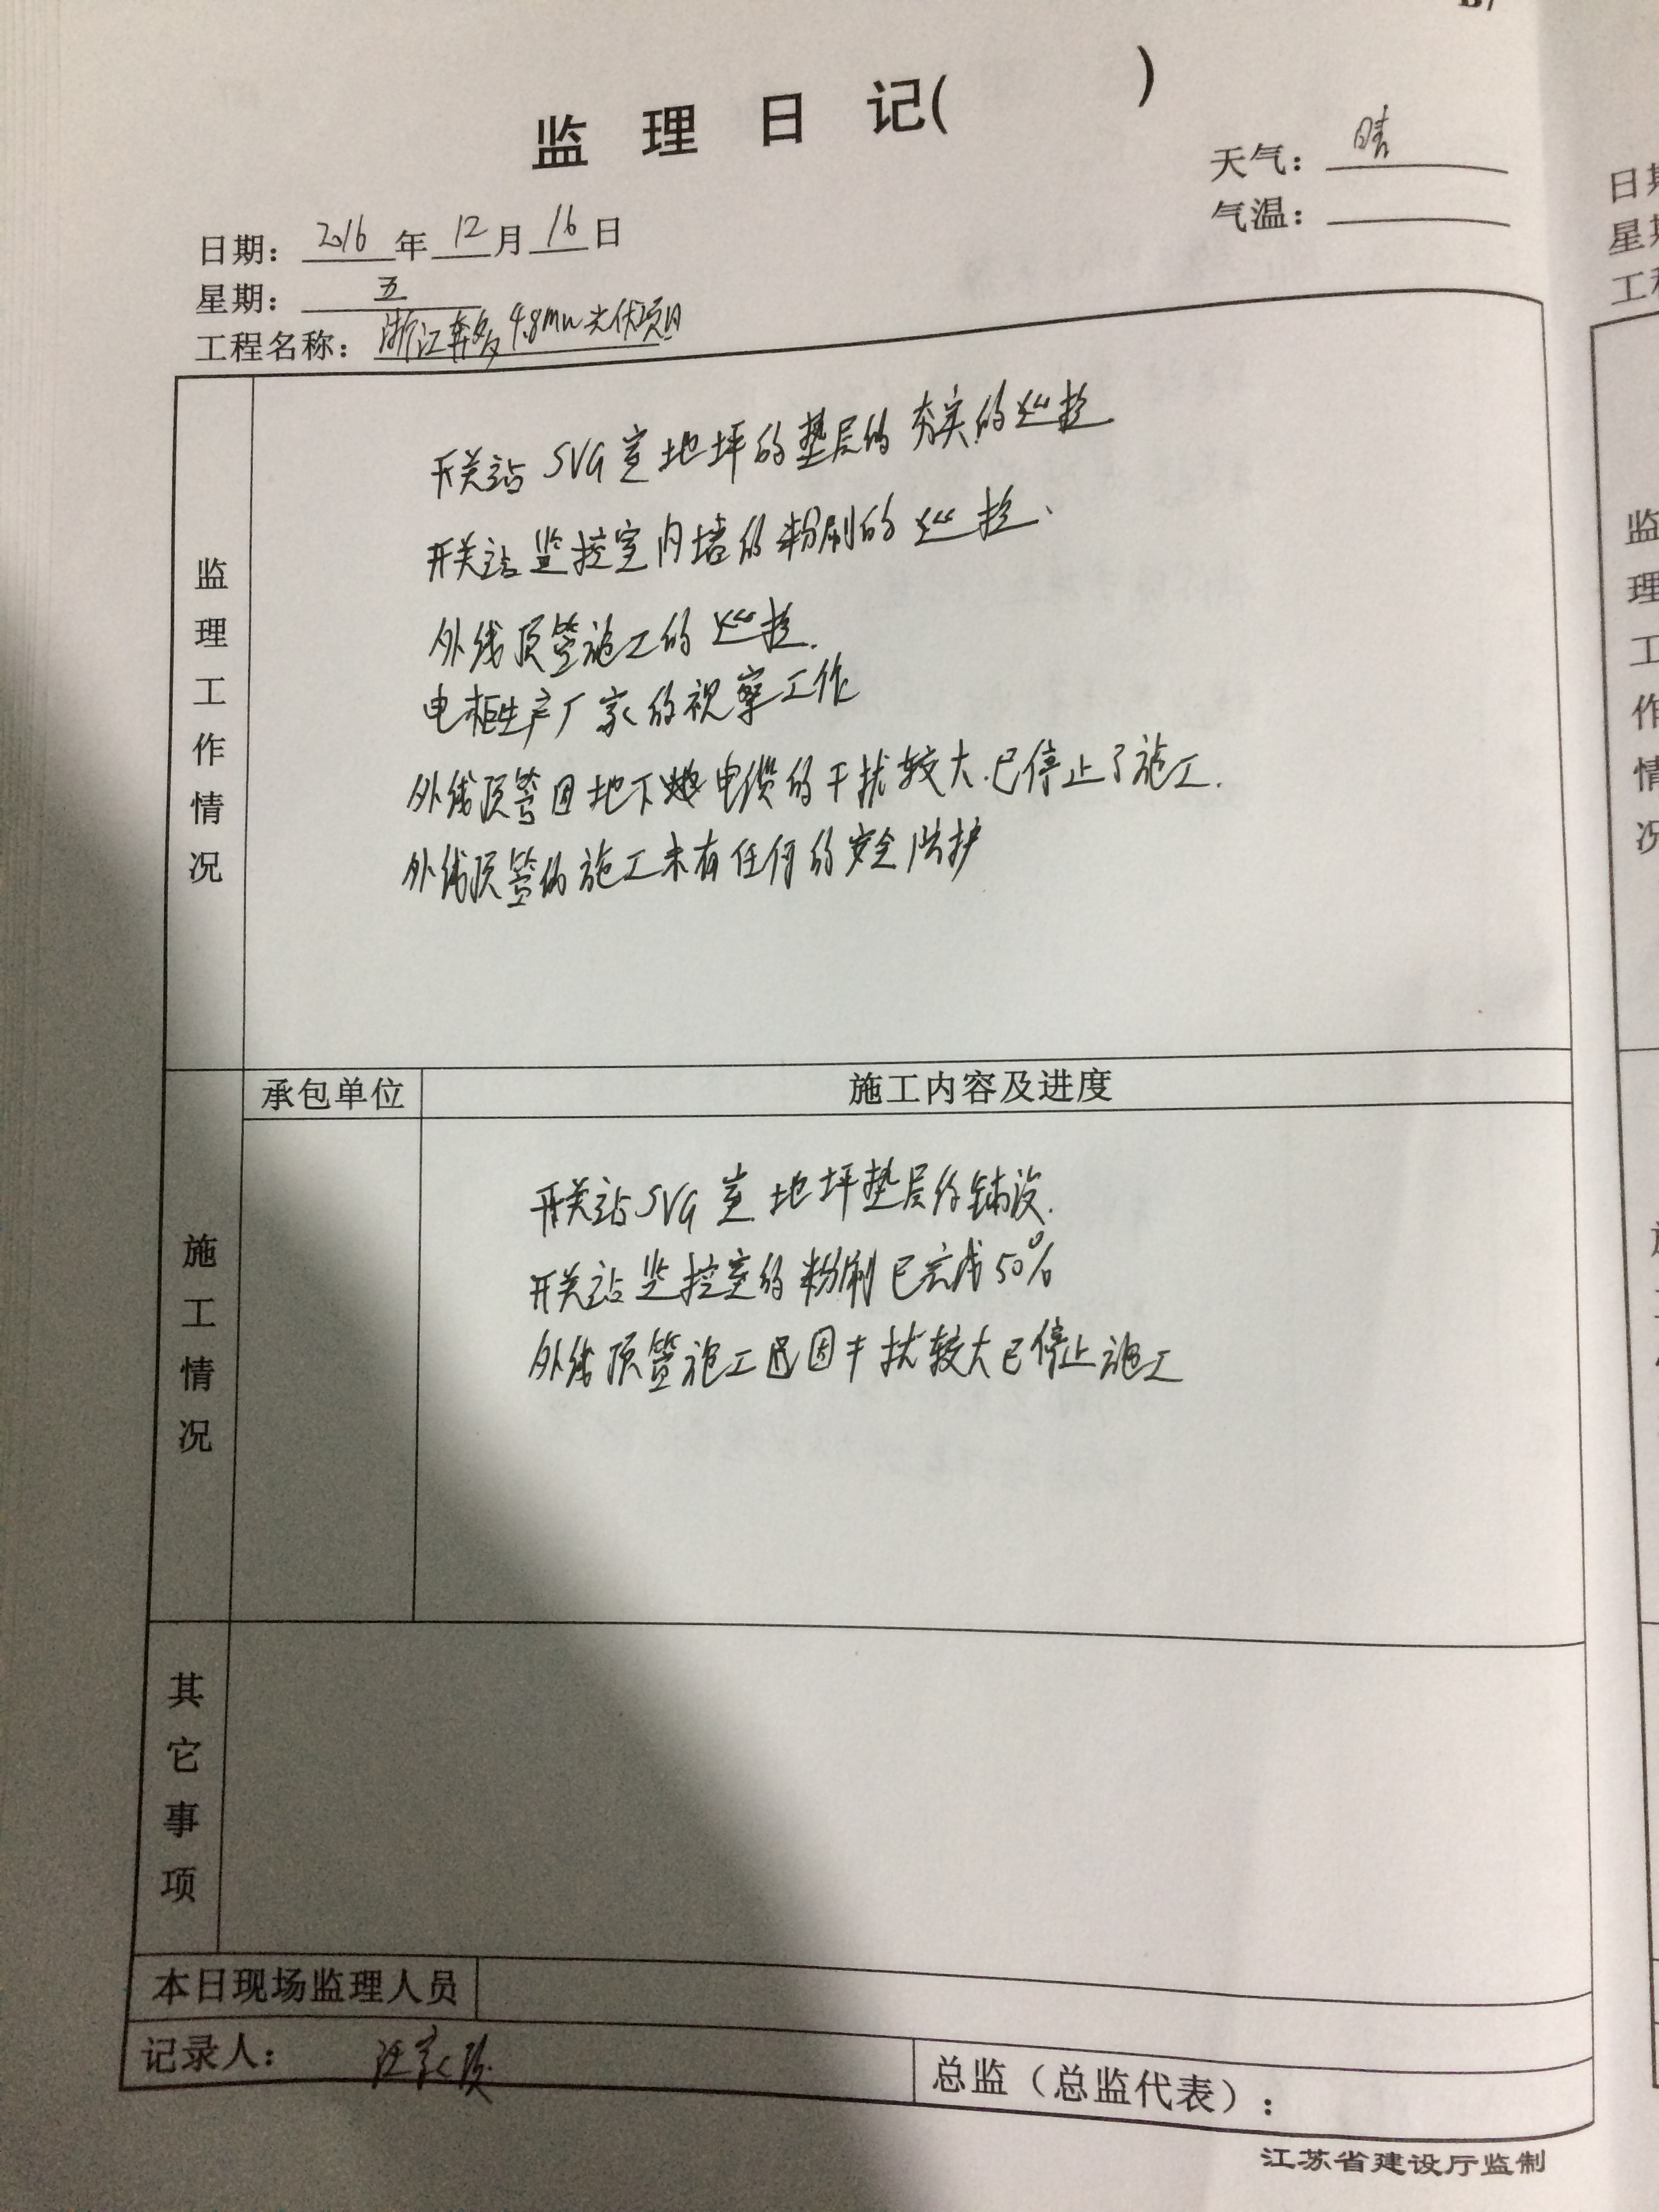 监 理 日 记( )
天气: 晴
气温:
日期: 2016 年 12 月 16 日
星期: 五
工程名称: 浙江奔多4.8MW光伏项目
监理工作情况
开关站SVG室地坪的垫层的夯实的巡检
开关站监控室内墙的粉刷的巡检、
外线顶管施工的巡检.
电柜生产厂家的视察工作
外线顶管因地下电缆的干扰较大.已停止了施工.
外线顶管的施工未有任何的安全防护
承包单位
施工内容及进度
施工情况
开关站SVG室地坪垫层的铺设.
开关站监控室的粉刷已完成50%
外线顶管施工因干扰较大已停止施工
其它事项
本日现场监理人员
记录人: 汪家
总监（总监代表）:
江苏省建设厅监制
日
星
工
监
理
工
作
情
况